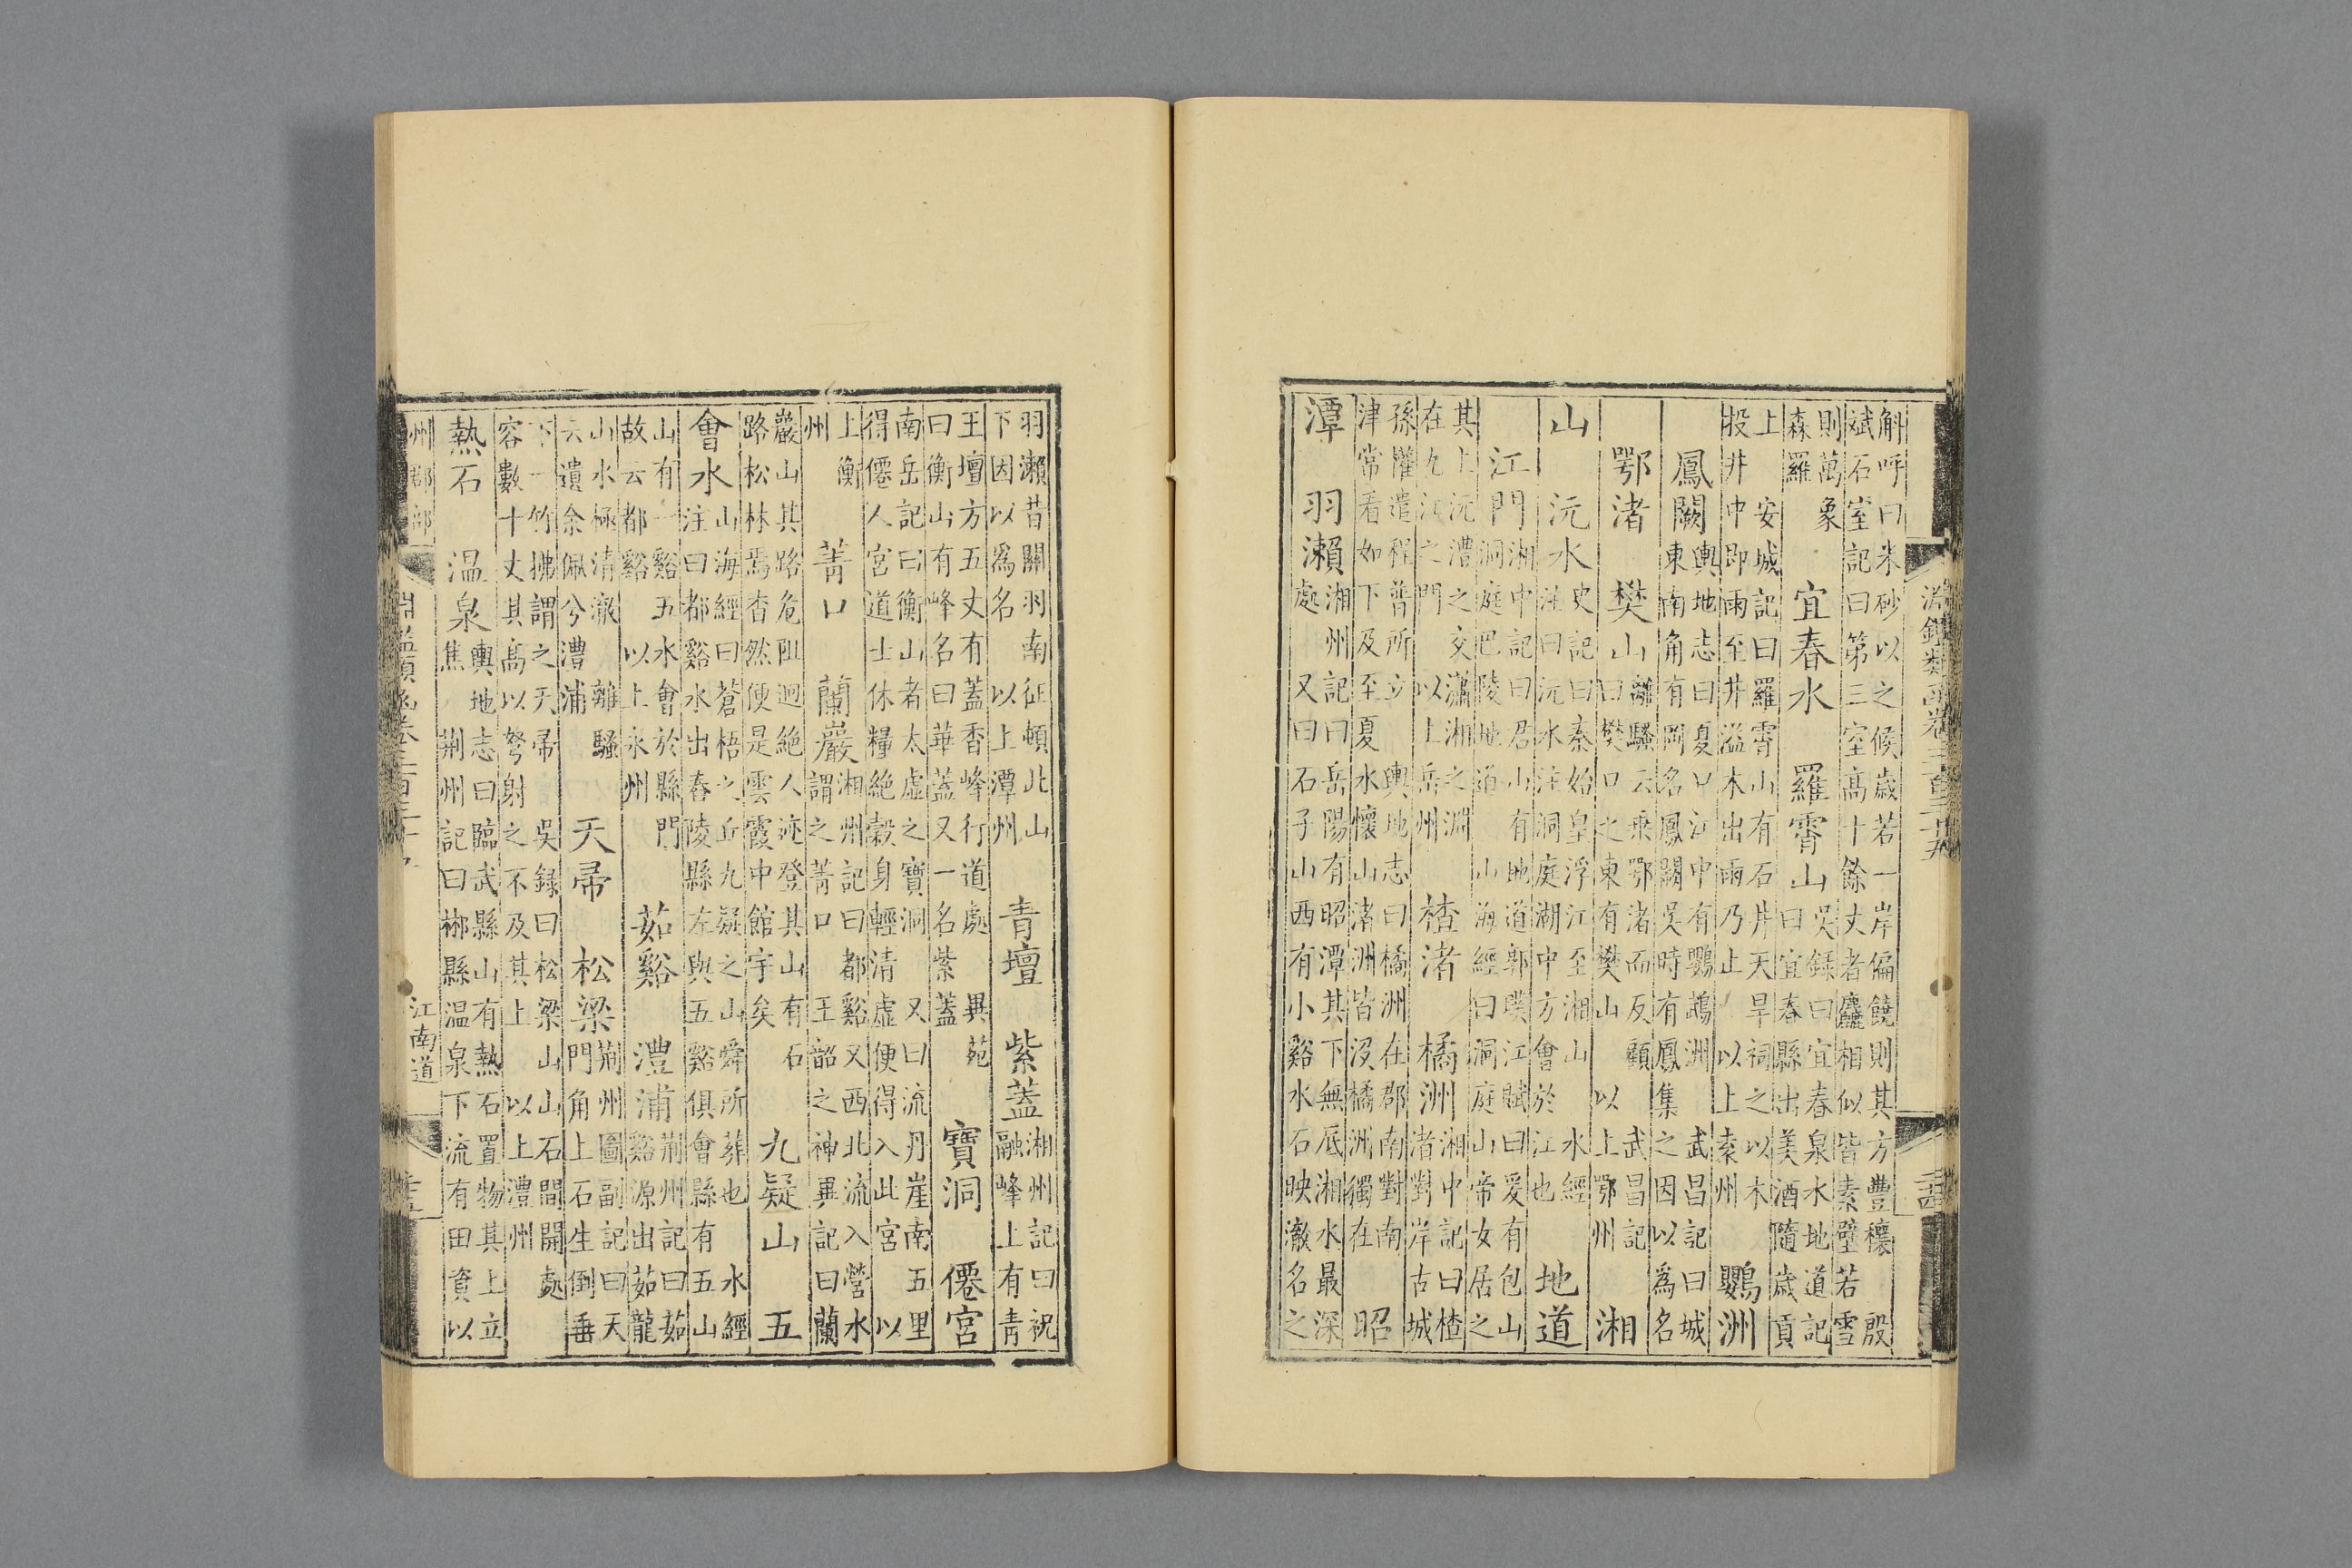 淵鑑類函卷三百三十五
斛呼曰米砂以之候歲若一岸偏饒則其方豐穰 殷
斌石室記曰第三室高十餘丈者麤相似皆素壁若雪
則萬象
森羅 宜春水 羅霄山 吳錄曰宜春泉水地道記
曰宜春縣出美酒隨歲貢
上 安城記曰羅霄山有石井天旱祠之以木
投井中即雨至井溢木出雨乃止 以上袁州 鸚洲
鳳闕 輿地志曰夏口江中有鸚鵡洲 武昌記曰城
東南角有岡名鳳闕吳時有鳳集之因以為名
鄂渚 樊山 離騷云乘鄂渚而反顧 武昌記
曰樊口之東有樊山 以上鄂州 湘
山 沅水 史記曰秦始皇浮江至湘山 水經
注曰沅水注洞庭湖中方會於江也 地道
江門 湘中記曰君山有地道郭璞江賦曰爰有包山
洞庭巴陵地道 山海經曰洞庭山帝女居之
其上沅澧之交瀟湘之淵
在九江之門 以上岳州 楂渚 橘洲 湘中記曰楂
渚對岸古城
孫權遣程普所立 輿地志曰橘洲在郡南對南
津常看如下及至夏水懷山渚洲皆沒橘洲獨在 昭
潭 羽瀨 湘州記曰岳陽有昭潭其下無底湘水最深
處 又曰石子山西有小谿水石映澈名之
羽瀨昔關羽南征頓北山
下因以為名 以上潭州 青壇 紫蓋 湘州記曰祝
融峰上有青
王壇方五丈有蓋香峰行道處 異苑
曰衡山有峰名曰華蓋又一名紫蓋 寶洞 僊宮
南岳記曰衡山者太虛之寶洞 又曰流丹崖南五里
得僊人宮道士休糧絕穀身輕清虛便得入此宮 以
上衡
州 菁口 蘭巖 湘州記曰都谿又西北流入營水
謂之菁口 王韶之神異記曰蘭
巖山其路危阻迴絕人迹登其山有石
路松林焉杳然便是雲霞中館宇矣 九疑山 五
會水 山海經曰蒼梧之丘九疑之山舜所葬也 水經
注曰都谿水出舂陵縣左與五谿俱會縣有五山
山有一谿五水會於縣門
故云都谿 以上永州 茹谿 澧浦 荊州記曰茹
谿源出茹龍
山水極清澈 離騷
云遺余佩兮澧浦 天帚 松梁 荊州圖副記曰天
門角上石生倒垂
下一竹拂謂之天帚 吳錄曰松梁山山石間開處
容數十丈其高以弩射之不及其上 以上澧州
熱石 溫泉 輿地志曰臨武縣山有熱石置物其上立
焦 荊州記曰郴縣溫泉下流有田資以
州郡部
江南道